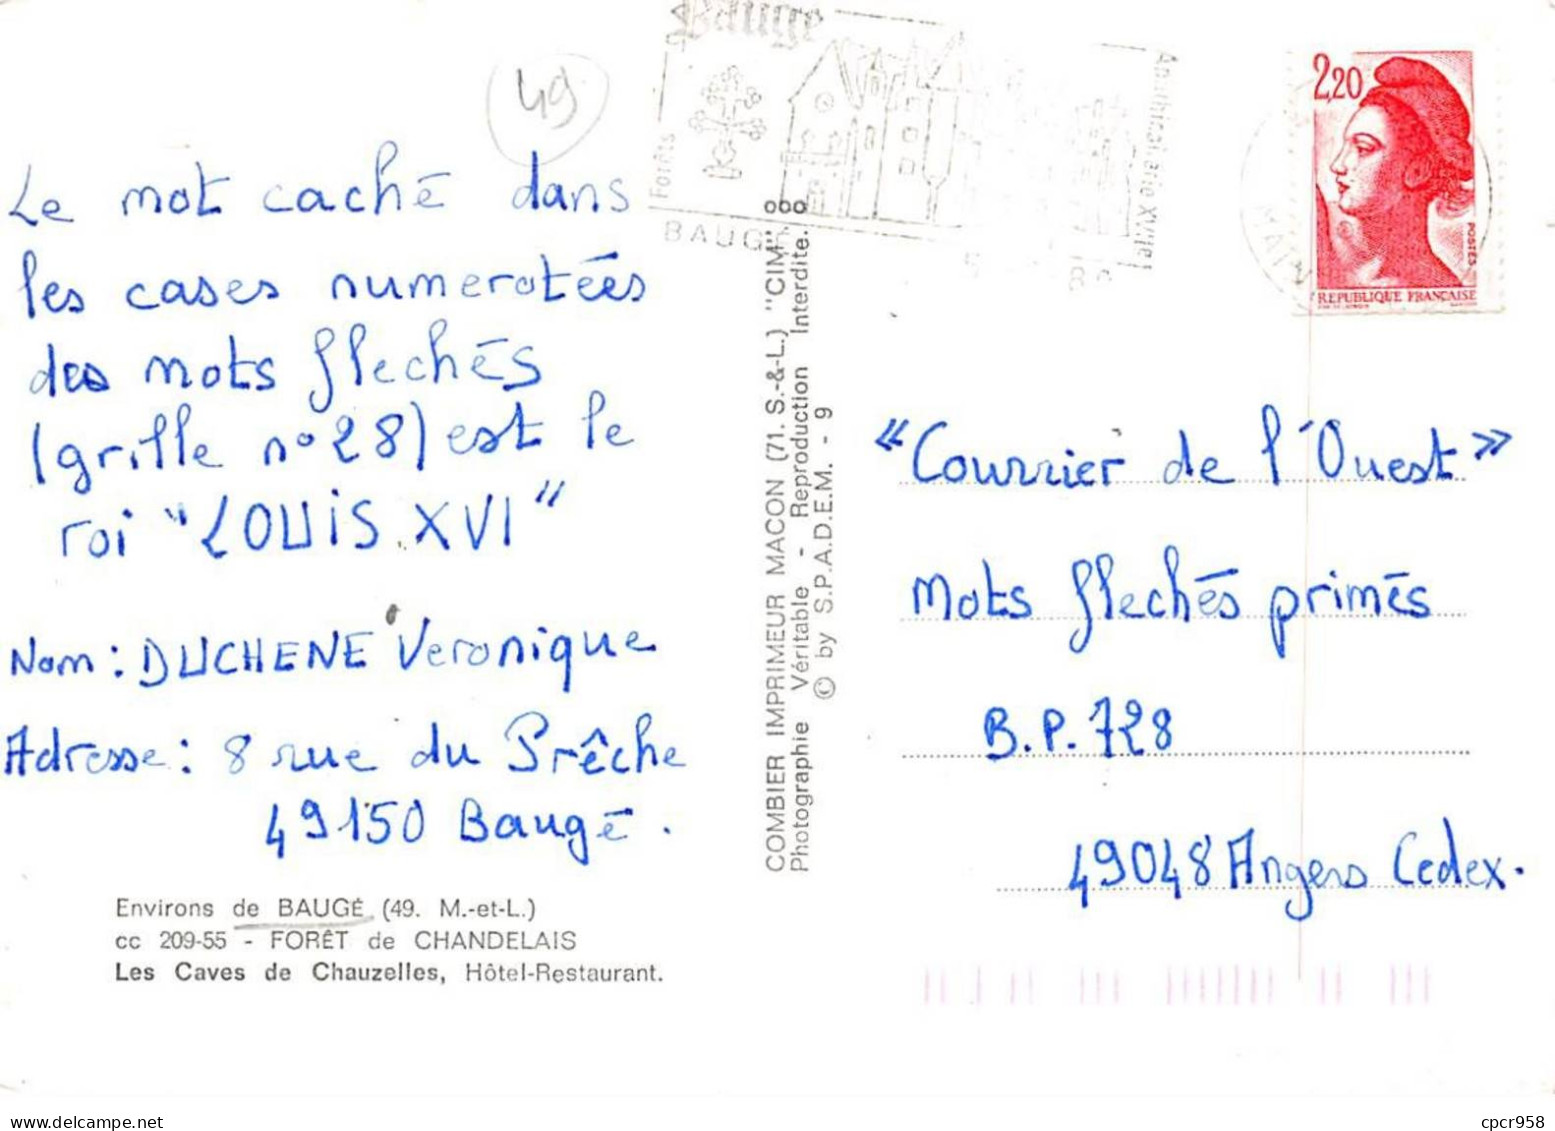 49
Baugé
Forêts
Apothicairerie XVIIe
BAUGE
2,20
POSTES
REPUBLIQUE FRANÇAISE
Le mot caché dans
les cases numerotées
des mots flechés
(grille n° 28) est le
roi "LOUIS XVI"
Nom : DUCHENE Veronique
Adresse : 8 rue du Prêche
49150 Baugé.
Environs de BAUGÉ (49. M.-et-L.)
cc 209-55 - FORÊT de CHANDELAIS
Les Caves de Chauzelles, Hôtel-Restaurant.
COMBIER IMPRIMEUR MACON (71. S.-&-L.) "CIM"
Photographie Véritable - Reproduction Interdite.
© by S.P.A.D.E.M. - 9
« Courrier de l'Ouest »
Mots flechés primés
B.P. 728
49048 Angers Cedex.
delcampe.net
cpcr958